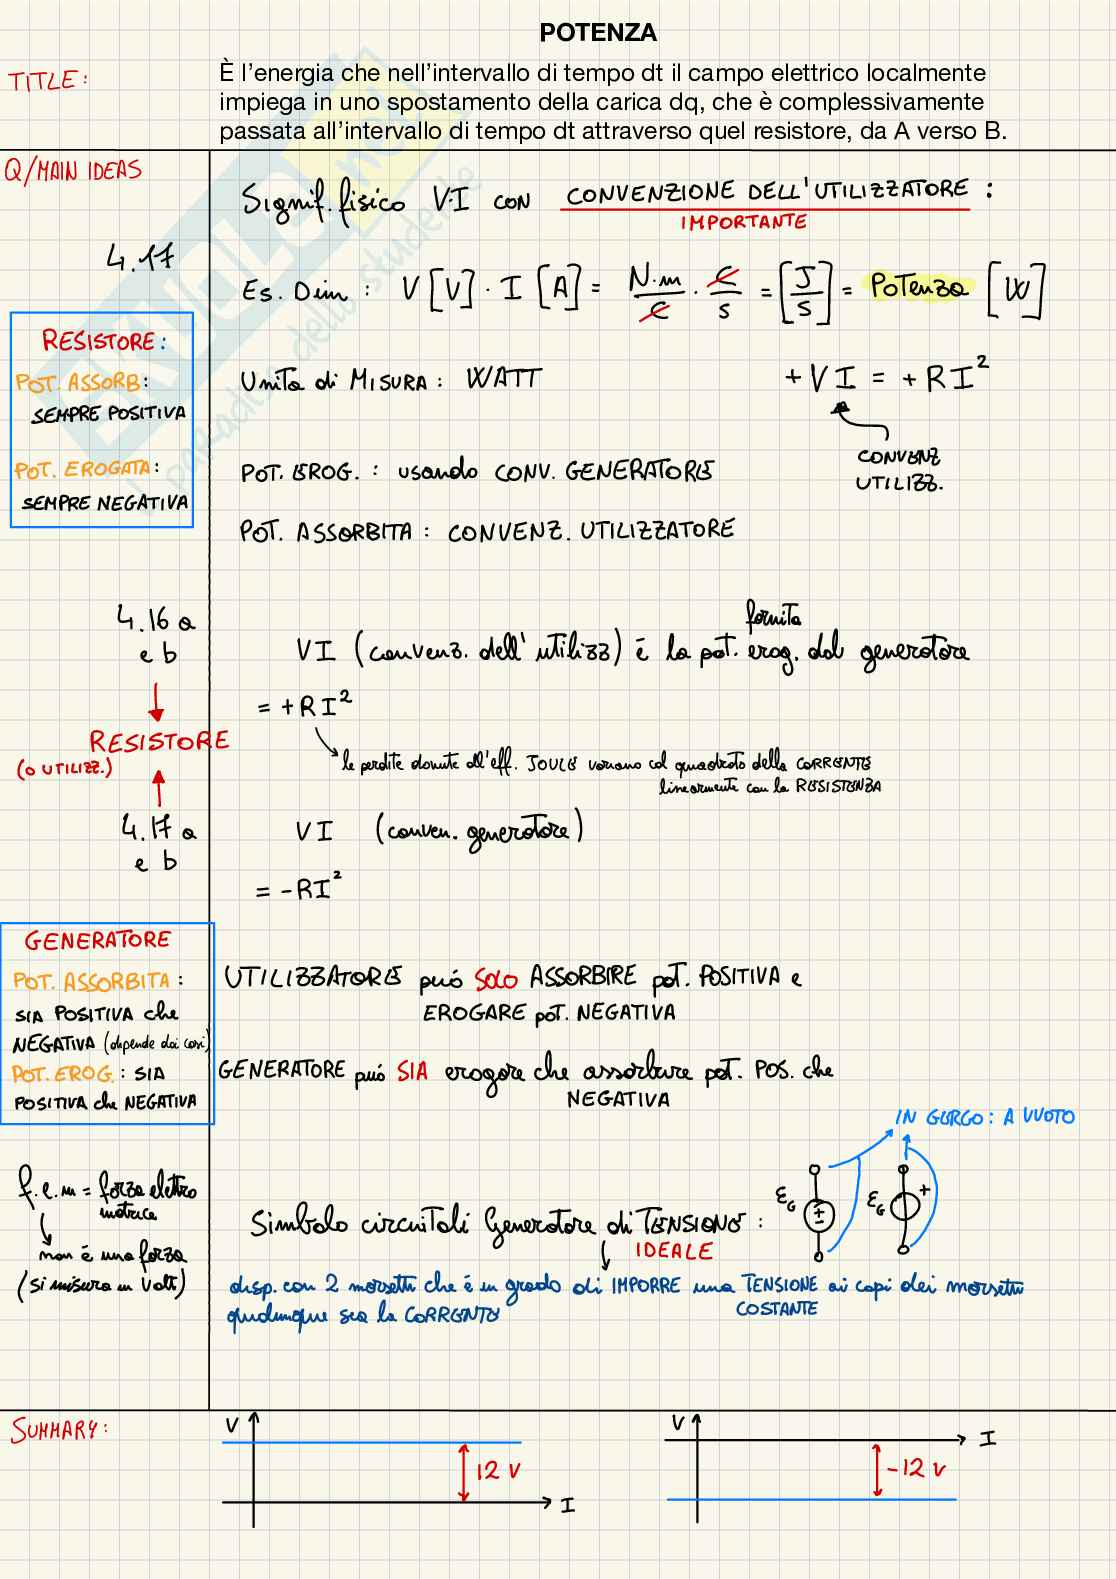 POTENZA
TITLE:
È l'energia che nell'intervallo di tempo dt il campo elettrico localmente
impiega in uno spostamento della carica dq, che è complessivamente
passata all'intervallo di tempo dt attraverso quel resistore, da A verso B.
Q/MAIN IDEAS
Signif. fisico V·I con CONVENZIONE DELL'UTILIZZATORE :
IMPORTANTE
4.17
Es. Dim : V [V] · I [A] = N·m/C · C/s = [J/s] = Potenza [W]
RESISTORE :
POT. ASSORB :
SEMPRE POSITIVA
POT. EROGATA :
SEMPRE NEGATIVA
Unità di MISURA : WATT
+ V I = + R I²
CONVENZ
UTILIZZ.
POT. EROG. : usando CONV. GENERATORE
POT. ASSORBITA : CONVENZ. UTILIZZATORE
4.16 a
e b
RESISTORE
(O UTILIZZ.)
4.17 a
e b
fornita
VI (convenz. dell'utilizz) é la pot. erog. dal generatore
= + R I²
le perdite dovute all'eff. JOULE variano col quadrato della CORRENTE
linearmente con la RESISTENZA
VI (conven. generatore)
= - R I²
GENERATORE
POT. ASSORBITA :
SIA POSITIVA che
NEGATIVA (dipende dai casi)
POT. EROG. : SIA
POSITIVA che NEGATIVA
UTILIZZATORE puó SOLO ASSORBIRE pot. POSITIVA e
EROGARE pot. NEGATIVA
GENERATORE puó SIA erogare che assorbire pot. POS. che
NEGATIVA
IN GERGO : A VUOTO
f.e.m = forza elettro
motrice
non é una forza
(si misura in Volt)
Simbolo circuitali Generatore di TENSIONE :
IDEALE
εG + −
εG +
disp. con 2 morsetti che é in grado di IMPORRE una TENSIONE ai capi dei morsetti
COSTANTE
qualunque sia la CORRENTE
SUMMARY :
V
12 V
I
V
I
-12 V